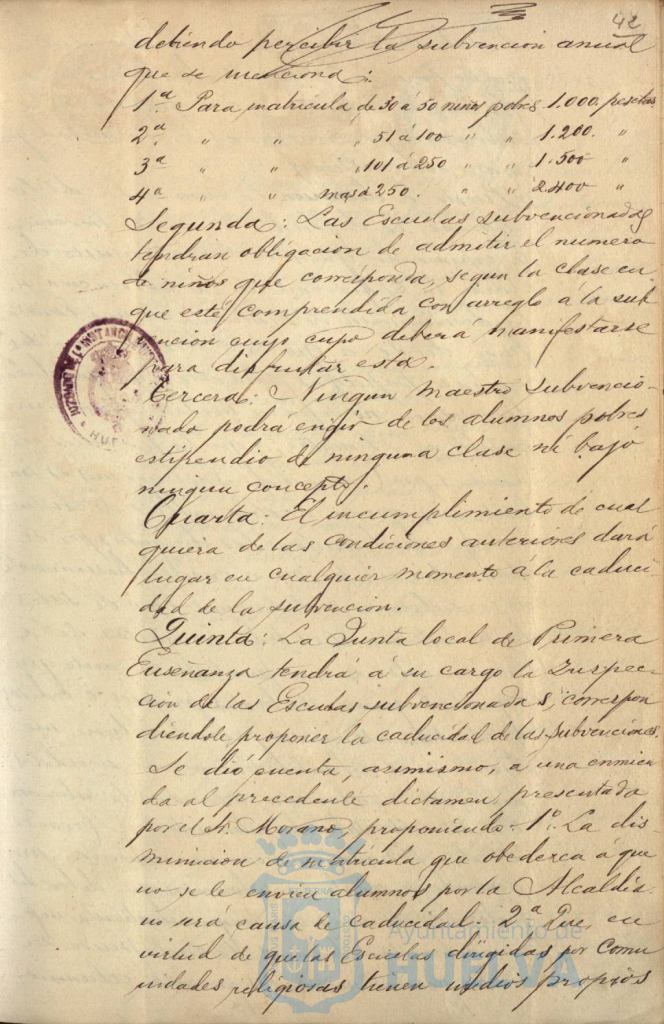 42
debiendo percibir la subvencion anual
que se menciona:
1ª Para matricula de 30 á 50 niños pobres 1.000. pesetas
2ª " " " 51 á 100 " " 1.200. "
3ª " " " 101 á 250 " " 1.500 "
4ª " " mas á 250. " " 2.400 "
Segunda: Las Escuelas subvencionadas
tendran obligacion de admitir el numero
de niños que corresponda, segun la clase en
que esté comprendida con arreglo á la sub
vencion cuyo cupo deberá manifestarse
para disfrutar esta.
Tercera: Ningun maestro subvencio-
nado podrá exigir de los alumnos pobres
estipendio de ninguna clase ni bajo
ningun concepto.
Cuarta: El incumplimiento de cual
quiera de las condiciones anteriores dará
lugar en cualquier momento á la caduci-
dad de la subvencion.
Quinta: La Junta local de Primera
Enseñanza tendrá á su cargo la Inspec-
cion de las Escuelas subvencionadas, correspon
diendole proponer la caducidad de las subvenciones.
Se dió cuenta, asimismo, a una enmien
da al precedente dictamen presentada
por el Sr. Morano, proponiendo: 1º. La dis-
minucion de matricula que obedezca á que
no se le envien alumnos por la Alcaldia
no será causa de caducidad. 2ª Que, en
virtud de que las Escuelas dirigidas por Comu
nidades religiosas tienen medios propios
Ayuntamiento de
HUELVA